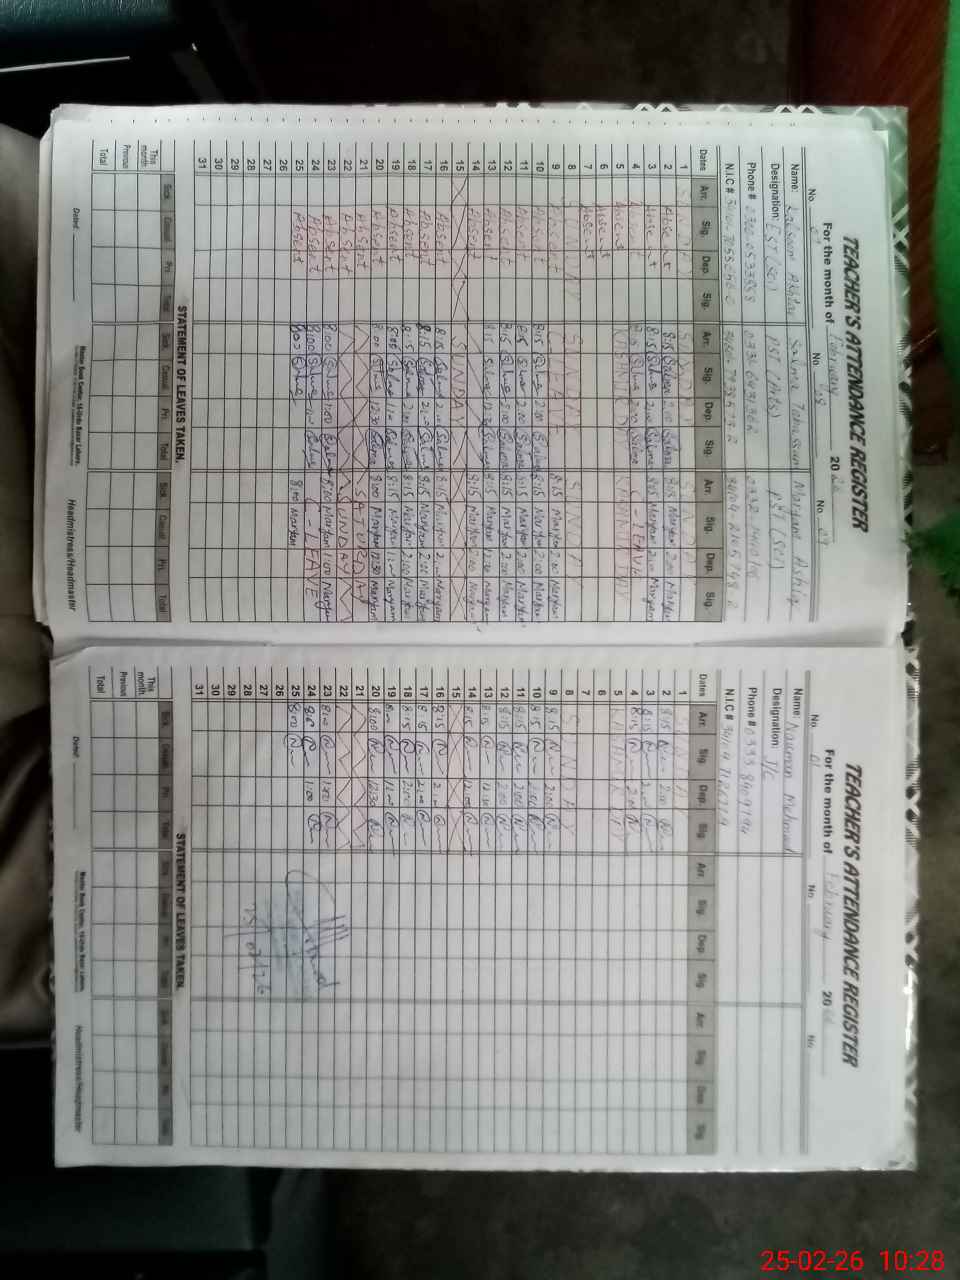 TEACHER'S ATTENDANCE REGISTER
For the month of February 2026
No. 07 No. 08 No. 09
Name: Kalsoom Akhtar Salma Tabassum Maryam Ashiq
Designation: EST (Sci) PST (Arts) PST (Sci)
Phone #
N.I.C #
Dates Arr. Sig. Dep. Sig. Arr. Sig. Dep. Sig. Arr. Sig. Dep. Sig.
1 SUNDAY SUNDAY SUNDAY
2 Absent 8:15 Salma 2:00 Salma 8:15 Maryam 2:00 Maryam
3 Absent 8:15 Salma 2:00 Salma 8:15 Maryam 2:00 Maryam
4 Absent 8:15 Salma 2:00 Salma C-LEAVE
5 Absent KASHMIR DAY KASHMIR DAY
6 Absent
7 Absent
8 SUNDAY SUNDAY SUNDAY
9 Absent C-LEAVE 8:15 Maryam 2:00 Maryam
10 Absent 8:15 Salma 2:00 Salma 8:15 Maryam 2:00 Maryam
11 Absent 8:15 Salma 2:00 Salma 8:15 Maryam 2:00 Maryam
12 Absent 8:15 Salma 2:00 Salma 8:15 Maryam 2:00 Maryam
13 Absent 8:15 Salma 12:30 Salma 8:15 Maryam 12:30 Maryam
14 Absent 8:15 Maryam 2:00 Maryam
15 SUNDAY
16 Absent 8:15 Salma 2:00 Salma 8:15 Maryam 2:00 Maryam
17 Absent 8:15 Salma 2:00 Salma 8:15 Maryam 2:00 Maryam
18 Absent 8:15 Salma 2:00 Salma 8:15 Maryam 2:00 Maryam
19 Absent 8:00 Salma 1:00 Salma 8:15 Maryam 1:00 Maryam
20 Absent 8:00 Salma 12:30 Salma 8:00 Maryam 12:30 Maryam
21 Absent SATURDAY
22 Absent SUNDAY
23 Absent 8:00 Salma 1:00 Salma 8:00 Maryam 1:00 Maryam
24 Absent 8:00 Salma 1:00 Salma C-LEAVE
25 Absent 8:00 Salma 8:00 Maryam
26
27
28
29
30
31
STATEMENT OF LEAVES TAKEN.
Sick Casual Pri. Total Sick Casual Pri. Total Sick Casual Pri. Total
This month
Previous
Total
Dated: Master Book Center, 16-Urdu Bazar Lahore. Headmistress/Headmaster
TEACHER'S ATTENDANCE REGISTER
For the month of February 2026
No. 01 No. No.
Name: Nauman Mehmood
Designation: J/C
Phone #
N.I.C #
Dates Arr. Sig. Dep. Sig. Arr. Sig. Dep. Sig. Arr. Sig. Dep. Sig.
1 SUNDAY
2 8:15 2:00
3 8:15 2:00
4 8:15 2:00
5 KASHMIR DAY
6
7
8 SUNDAY
9 8:15 2:00
10 8:15 2:00
11 8:15 2:00
12 8:15 2:00
13 8:15 12:30
14 8:15 12:00
15
16 8:15 2:00
17 8:15 2:00
18 8:15 2:00
19 8:00 1:00
20 8:00 12:30
21
22
23 8:00 1:00
24 8:00 1:00
25 8:00
26
27
28
29
30
31
25/02/26
STATEMENT OF LEAVES TAKEN.
Sick Casual Pri. Total Sick Casual Pri. Total Sick Casual Pri. Total
This month
Previous
Total
Dated: Master Book Center, 16-Urdu Bazar Lahore. Headmistress/Headmaster
25-02-26 10:28